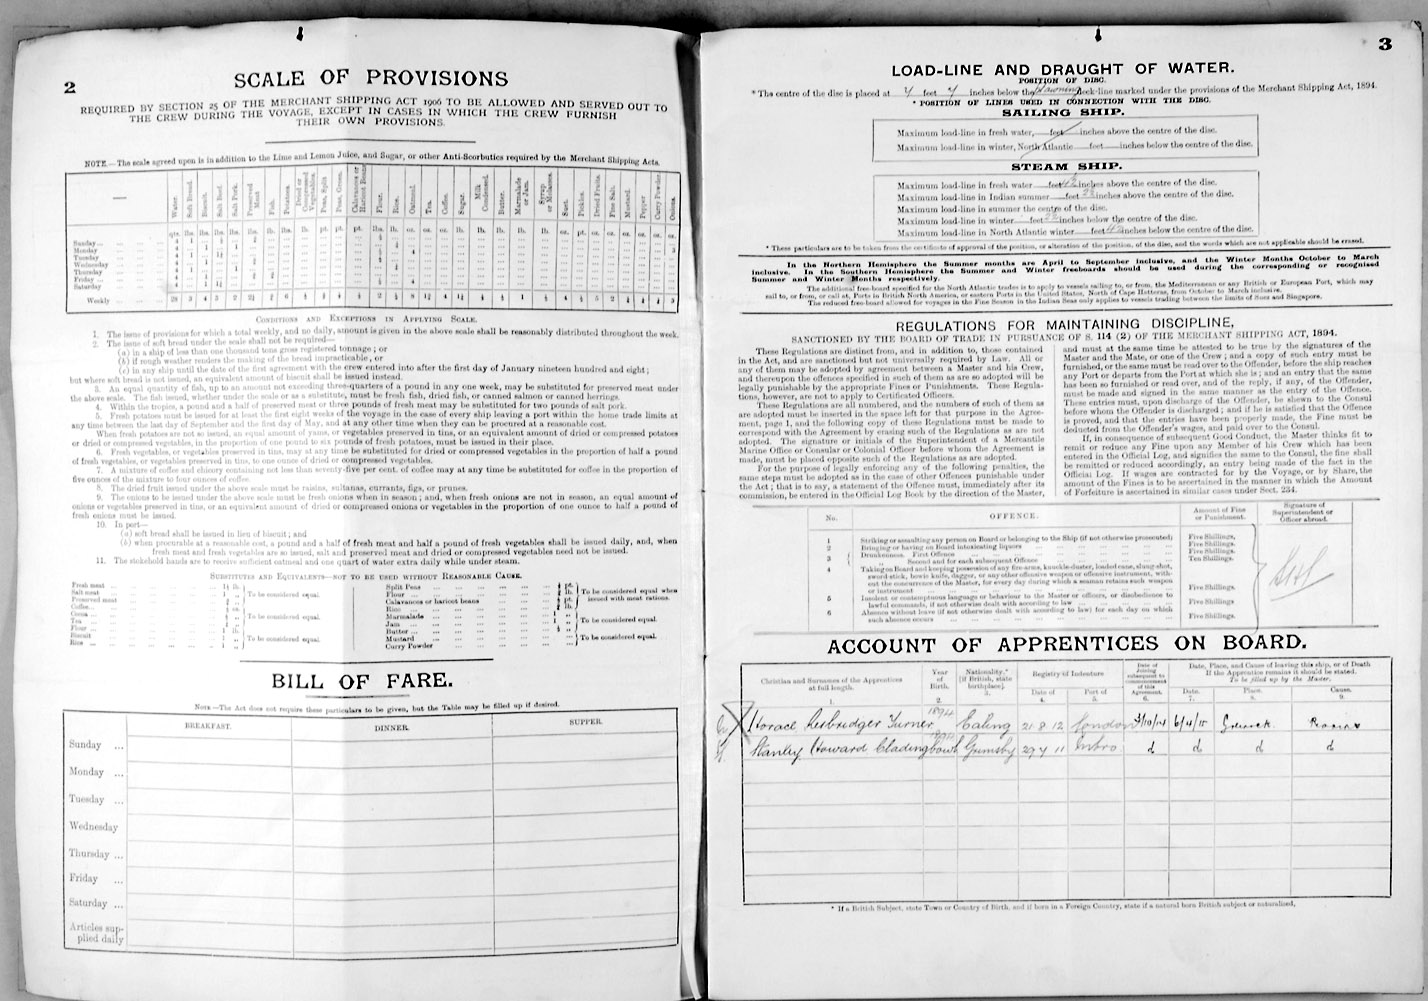 2
SCALE OF PROVISIONS
REQUIRED BY SECTION 25 OF THE MERCHANT SHIPPING ACT 1906 TO BE ALLOWED AND SERVED OUT TO
THE CREW DURING THE VOYAGE, EXCEPT IN CASES IN WHICH THE CREW FURNISH
THEIR OWN PROVISIONS.
NOTE.—The scale agreed upon is in addition to the Lime and Lemon Juice, and Sugar, or other Anti-Scorbutics required by the Merchant Shipping Acts.
Water. Soft Bread. Biscuit. Salt Beef. Salt Pork. Preserved Meat. Fish. Potatoes. Dried or Compressed Vegetables. Peas, Split Peas, Green. Calavances or Haricot Beans Flour. Rice. Oatmeal. Tea. Coffee. Sugar. Milk Condensed. Butter. Marmalade or Jam. Syrup or Molasses. Suet. Pickles. Dried Fruits. Fine Salt. Mustard. Pepper Curry Powder. Onions.
Sunday
Monday
Tuesday
Wednesday
Thursday
Friday
Saturday
Weekly
CONDITIONS AND EXCEPTIONS IN APPLYING SCALE.
1. The issue of provisions for which a total weekly, and no daily, amount is given in the above scale shall be reasonably distributed throughout the week.
2. The issue of soft bread under the scale shall not be required—
(a) in a ship of less than one thousand tons gross registered tonnage; or
(b) if rough weather renders the making of the bread impracticable, or
(c) in any ship until the date of the first agreement with the crew entered into after the first day of January nineteen hundred and eight;
but where soft bread is not issued, an equivalent amount of biscuit shall be issued instead.
3. An equal quantity of fish, up to an amount not exceeding three-quarters of a pound in any one week, may be substituted for preserved meat under
the above scale. The fish issued, whether under the scale or as a substitute, must be fresh fish, dried fish, or canned salmon or canned herrings.
4. Within the tropics, a pound and a half of preserved meat or three pounds of fresh meat may be substituted for two pounds of salt pork.
5. Fresh potatoes must be issued for at least the first eight weeks of the voyage in the case of every ship leaving a port within the home trade limits at
any time between the last day of September and the first day of May, and at any other time when they can be procured at a reasonable cost.
When fresh potatoes are not so issued, an equal amount of yams, or vegetables preserved in tins, or an equivalent amount of dried or compressed potatoes
or dried or compressed vegetables, in the proportion of one pound to six pounds of fresh potatoes, must be issued in their place.
6. Fresh vegetables, or vegetables preserved in tins, may at any time be substituted for dried or compressed vegetables in the proportion of half a pound
of fresh vegetables, or vegetables preserved in tins, to one ounce of dried or compressed vegetables.
7. A mixture of coffee and chicory containing not less than seventy-five per cent. of coffee may at any time be substituted for coffee in the proportion of
five ounces of the mixture to four ounces of coffee.
8. The dried fruit issued under the above scale must be raisins, sultanas, currants, figs, or prunes.
9. The onions to be issued under the above scale must be fresh onions when in season; and, when fresh onions are not in season, an equal amount of
onions or vegetables preserved in tins, or an equivalent amount of dried or compressed onions or vegetables in the proportion of one ounce to half a pound of
fresh onions must be issued.
10. In port—
(a) soft bread shall be issued in lieu of biscuit; and
(b) when procurable at a reasonable cost, a pound and a half of fresh meat and half a pound of fresh vegetables shall be issued daily, and, when
fresh meat and fresh vegetables are so issued, salt and preserved meat and dried or compressed vegetables need not be issued.
11. The stokehold hands are to receive sufficient oatmeal and one quart of water extra daily while under steam.
SUBSTITUTES AND EQUIVALENTS—NOT TO BE USED WITHOUT REASONABLE CAUSE.
Fresh meat
Salt meat
Preserved meat
To be considered equal.
Coffee
Cocoa
Tea
To be considered equal.
Flour
Biscuit
Rice
To be considered equal.
Split Peas
Flour
Calavances or haricot beans
Rice
To be considered equal when issued with meat rations.
Marmalade
Jam
Butter
To be considered equal.
Mustard
Curry Powder
To be considered equal.
BILL OF FARE.
NOTE—The Act does not require these particulars to be given, but the Table may be filled up if desired.
BREAKFAST. DINNER. SUPPER.
Sunday ...
Monday ...
Tuesday ...
Wednesday
Thursday ...
Friday ...
Saturday ...
Articles sup-
plied daily
3
LOAD-LINE AND DRAUGHT OF WATER.
POSITION OF DISC.
* The centre of the disc is placed at feet inches below the deck-line marked under the provisions of the Merchant Shipping Act, 1894.
* POSITION OF LINES USED IN CONNECTION WITH THE DISC.
SAILING SHIP.
Maximum load-line in fresh water, feet inches above the centre of the disc.
Maximum load-line in winter, North Atlantic feet inches below the centre of the disc.
STEAM SHIP.
Maximum load-line in fresh water feet inches above the centre of the disc.
Maximum load-line in Indian summer feet inches above the centre of the disc.
Maximum load-line in summer the centre of the disc.
Maximum load-line in winter feet inches below the centre of the disc.
Maximum load-line in North Atlantic winter feet inches below the centre of the disc.
* These particulars are to be taken from the certificate of approval of the position, or alteration of the position, of the disc, and the words which are not applicable should be erased.
In the Northern Hemisphere the Summer months are April to September inclusive, and the Winter Months October to March
inclusive. In the Southern Hemisphere the Summer and Winter freeboards should be used during the corresponding or recognised
Summer and Winter Months respectively.
The additional free-board specified for the North Atlantic trades is to apply to vessels sailing to, or from, the Mediterranean or any British or European Port, which may
sail to, or from, or call at, Ports in British North America, or eastern Ports in the United States, North of Cape Hatteras, from October to March inclusive.
The reduced free-board allowed for voyages in the Fine Season in the Indian Seas only applies to vessels trading between the limits of Suez and Singapore.
REGULATIONS FOR MAINTAINING DISCIPLINE,
SANCTIONED BY THE BOARD OF TRADE IN PURSUANCE OF S. 114 (2) OF THE MERCHANT SHIPPING ACT, 1894.
These Regulations are distinct from, and in addition to, those contained
in the Act, and are sanctioned but not universally required by Law. All or
any of them may be adopted by agreement between a Master and his Crew,
and thereupon the offences specified in such of them as are so adopted will be
legally punishable by the appropriate Fines or Punishments. These Regula-
tions, however, are not to apply to Certificated Officers.
These Regulations are all numbered, and the numbers of such of them as
are adopted must be inserted in the space left for that purpose in the Agree-
ment, page 1, and the following copy of these Regulations must be made to
correspond with the Agreement by erasing such of the Regulations as are not
adopted. The signature or initials of the Superintendent of a Mercantile
Marine Office or Consular or Colonial Officer before whom the Agreement is
made, must be placed opposite such of the Regulations as are adopted.
For the purpose of legally enforcing any of the following penalties, the
same steps must be adopted as in the case of other Offences punishable under
the Act; that is to say, a statement of the Offence must, immediately after its
commission, be entered in the Official Log Book by the direction of the Master,
and must at the same time be attested to be true by the signatures of the
Master and the Mate, or one of the Crew; and a copy of such entry must be
furnished, or the same must be read over to the Offender, before the ship reaches
any Port or departs from the Port at which she is; and an entry that the same
has been so furnished or read over, and of the reply, if any, of the Offender,
must be made and signed in the same manner as the entry of the Offence.
These entries must, upon discharge of the Offender, be shewn to the Consul
before whom the Offender is discharged; and if he is satisfied that the Offence
is proved, and that the entries have been properly made, the Fine must be
deducted from the Offender's wages, and paid over to the Consul.
If, in consequence of subsequent Good Conduct, the Master thinks fit to
remit or reduce any Fine upon any Member of his Crew which has been
entered in the Official Log, and signifies the same to the Consul, the fine shall
be remitted or reduced accordingly, an entry being made of the fact in the
Official Log. If wages are contracted for by the Voyage, or by Share, the
amount of the Fines is to be ascertained in the manner in which the Amount
of Forfeiture is ascertained in similar cases under Sect. 234.
No. OFFENCE. Amount of Fine or Punishment. Signature of Superintendent or Officer abroad.
1 Striking or assaulting any person on Board or belonging to the Ship (if not otherwise prosecuted) Five Shillings.
2 Bringing or having on Board intoxicating liquors Five Shillings.
3 Drunkenness. First Offence Five Shillings.
" Second and for each subsequent Offence Ten Shillings.
4 Taking on Board and keeping possession of any fire-arms, knuckle-duster, loaded cane, slung-shot,
sword-stick, bowie knife, dagger, or any other offensive weapon or offensive instrument, with-
out the concurrence of the Master, for every day during which a seaman retains such weapon
or instrument Five Shillings.
5 Insolent or contemptuous language or behaviour to the Master or officers, or disobedience to
lawful commands, if not otherwise dealt with according to law Five Shillings
6 Absence without leave (if not otherwise dealt with according to law) for each day on which
such absence occurs Five Shillings.
ACCOUNT OF APPRENTICES ON BOARD.
Christian and Surnames of the Apprentices at full length. Year of Birth. Nationality.* [If British, state birthplace]. Registry of Indenture Date of Port of Date of Joining subsequent to commencement of this Agreement. Date, Place, and Cause of leaving this ship, or of Death
If the Apprentice remains it should be stated.
To be filled up by the Master.
Date. Place. Cause.
1. 2. 3. 4. 5. 6. 7. 8. 9.
Horace Turner 1894 Ealing 21 8 12 London 6/4/15
Stanley Howard Grimsby 29 7 11 d d d d
* If a British Subject, state Town or Country of Birth, and if born in a Foreign Country, state if a natural born British subject or naturalised,